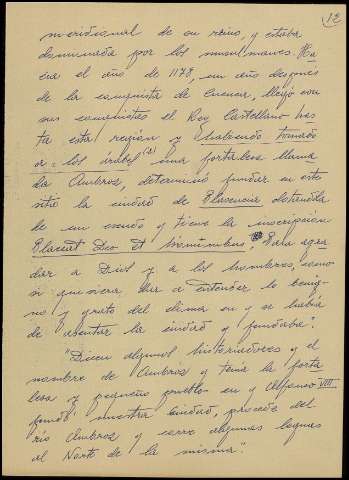 12
meridional de su reino, y estaba
dominada por los musulmanes. Ha-
cia el año de 1178, un año después
de la conquista de Cuenca, llegó con
sus conquistas el Rey Castellano has
ta esta región y habiendo tomado
a los árabes (2) una fortaleza llama
da Ambroz, determinó fundar en este
sitio la ciudad de Plasencia dotandola
de un escudo y tiene la inscripción
Placeat Deo et hominibus, Para agra
dar a Dios y a los hombres, como
si quisiera dar a entender lo benig-
no y grato del clima en q se había
de asentar la ciudad q fundaba".
"Dicen algunos historiadores q el
nombre de Ambroz q tenía la forta
leza y pequeño pueblo en q Alfonso VIII
fundó nuestra Ciudad, procede del
río Ambroz q corre algunas leguas
al Norte de la misma".